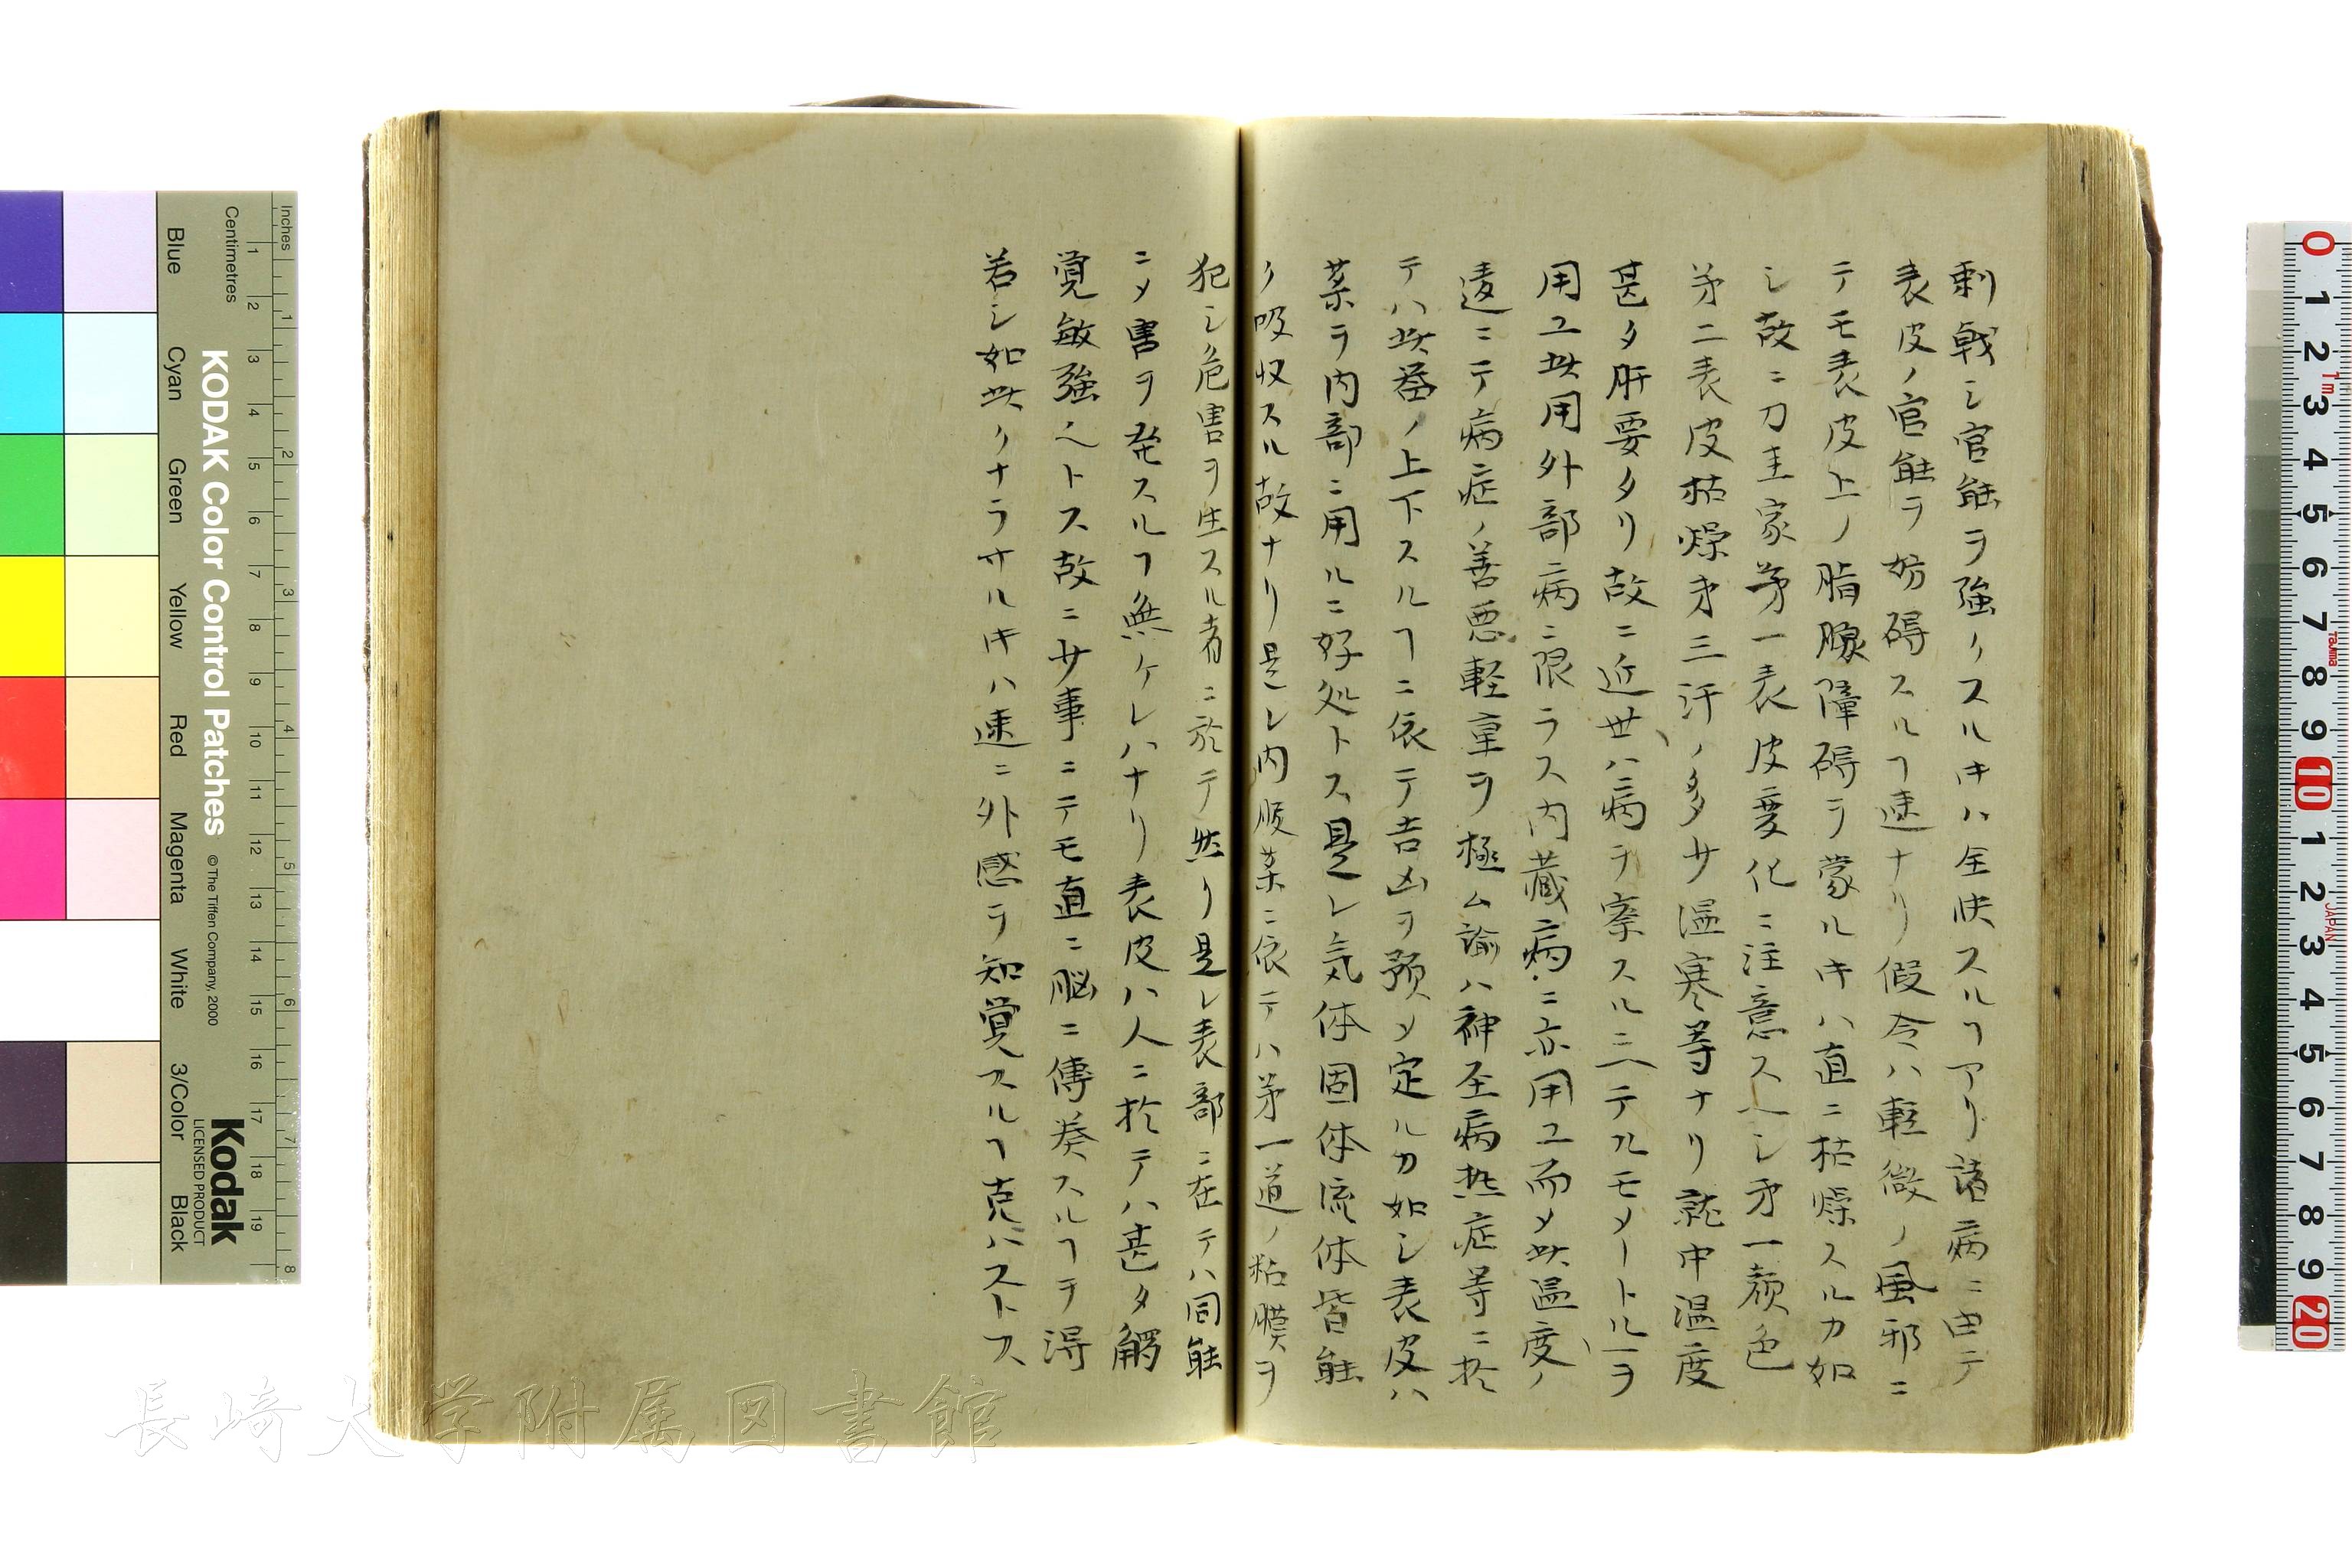 刺戟シ官能ヲ強クスルキハ全快スルヿアリ諸病ニ由テ
表皮ノ官能ヲ妨碍スルヿ速ナリ假令ハ軽微ノ風邪ニ
テモ表皮上ノ脂腺障碍ヲ蒙ルキハ直ニ枯燥スルカ如
シ故ニ刀圭家苐一表皮変化ニ注意スヘシ苐一顔色
苐二表皮枯燥苐三汗ノ多少温寒等ナリ就中温度
甚タ肝要タリ故ニ近世ハ病ヲ察スルニテルモメートルヲ
用ユ此用外部病ニ限ラス内蔵病ニ亦用ユ而メ此温度ノ
遠ニテ病症ノ善悪軽重ヲ極ム諭ハ神至病熱症等ニ於
テハ此器ノ上下スルヿニ依テ吉凶ヲ預メ定ルカ如シ表皮ハ
薬ヲ内部ニ用ルニ好処トス是レ気体固体流体皆能
ク吸収スル故ナリ是レ内服薬ニ依テハ苐一道ノ粘膜ヲ
犯シ危害ヲ生スル者ニ於テ然リ是レ表部ニ在テハ同能
ニメ害ヲ発スルヿ無ケレハナリ表皮ハ人ニ於テハ甚タ觸
覚敏強ヘトス故ニ少事ニテモ直ニ脳ニ傳奏スルヿヲ得
若シ如此クナラサルキハ速ニ外感ヲ知覚スルヿ克ハストス
長崎大学附属図書館
Inches
Centimetres
KODAK Color Control Patches
© The Tiffen Company, 2000
Kodak
LICENSED PRODUCT
Blue
Cyan
Green
Yellow
Red
Magenta
White
3/Color
Black
1 2 3 4 5 6 7 8 9 10 11 12 13 14 15 16 17 18 19
1 2 3 4 5 6 7 8
0 1 2 3 4 5 6 7 8 9 10 1 2 3 4 5 6 7 8 9 20
1m
Tajima
JAPAN